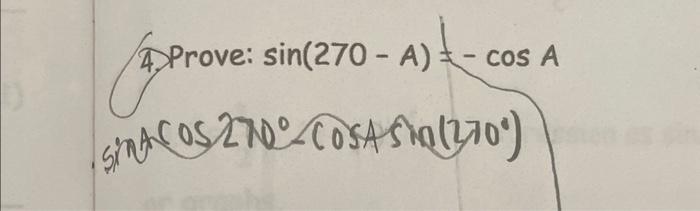 4. Prove: sin(270 - A) = - cos A
sinA cos 270° - cosA sin(270°)